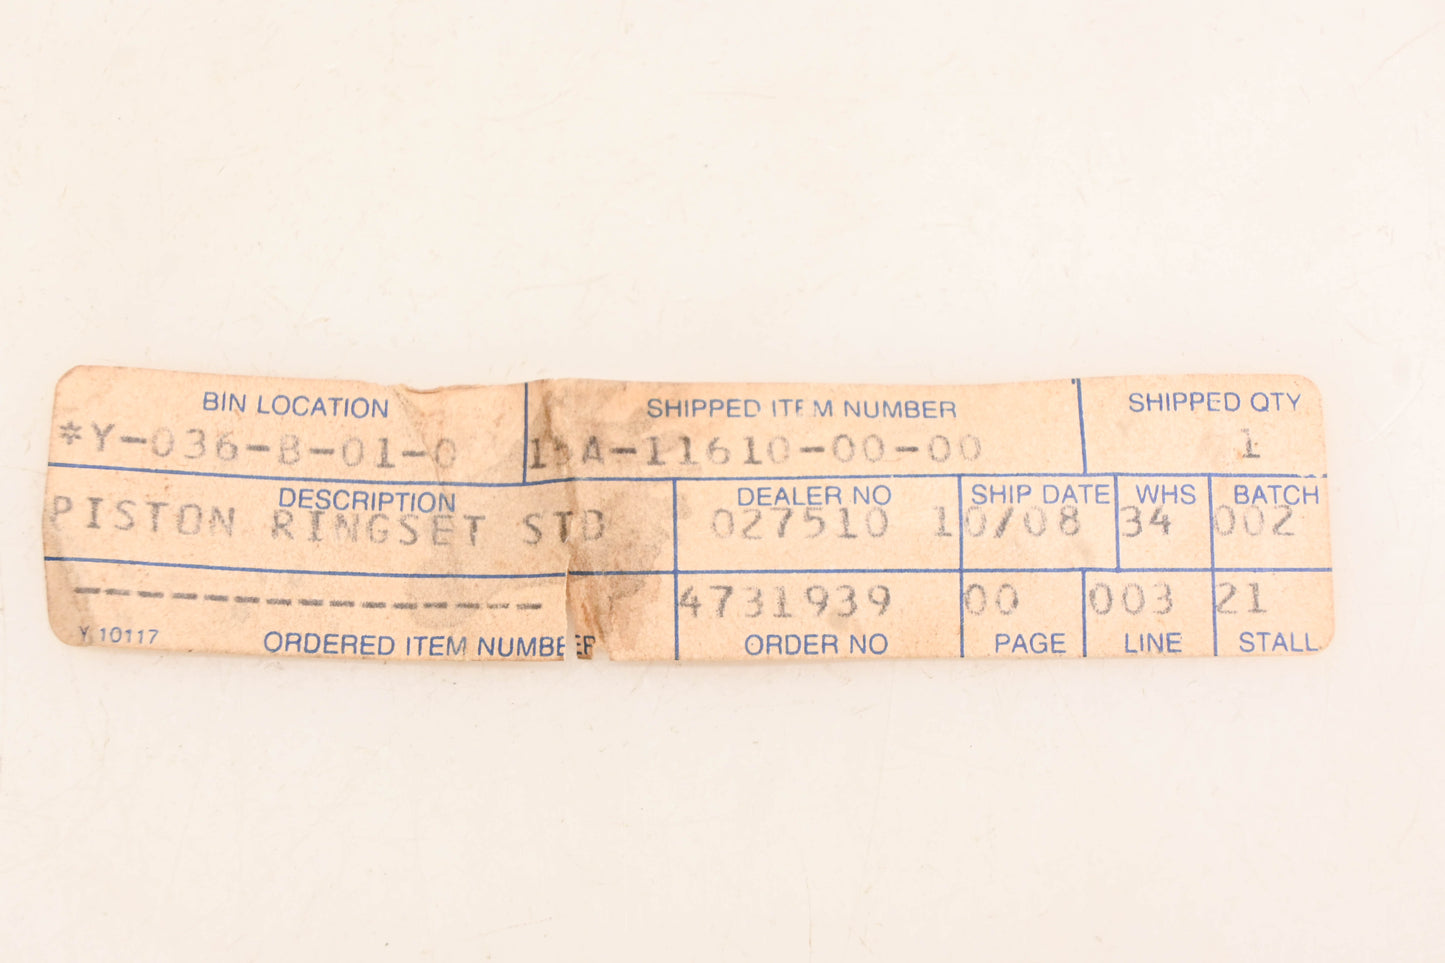 BIN LOCATION SHIPPED ITEM NUMBER SHIPPED QTY
*Y-036-B-01-0 A-11610-00-00 1
DESCRIPTION DEALER NO SHIP DATE WHS BATCH
PISTON RINGSET STD 027510 10/08 34 002
---------------  4731939 00 003 21
Y 10117 ORDERED ITEM NUMBER ORDER NO PAGE LINE STALL